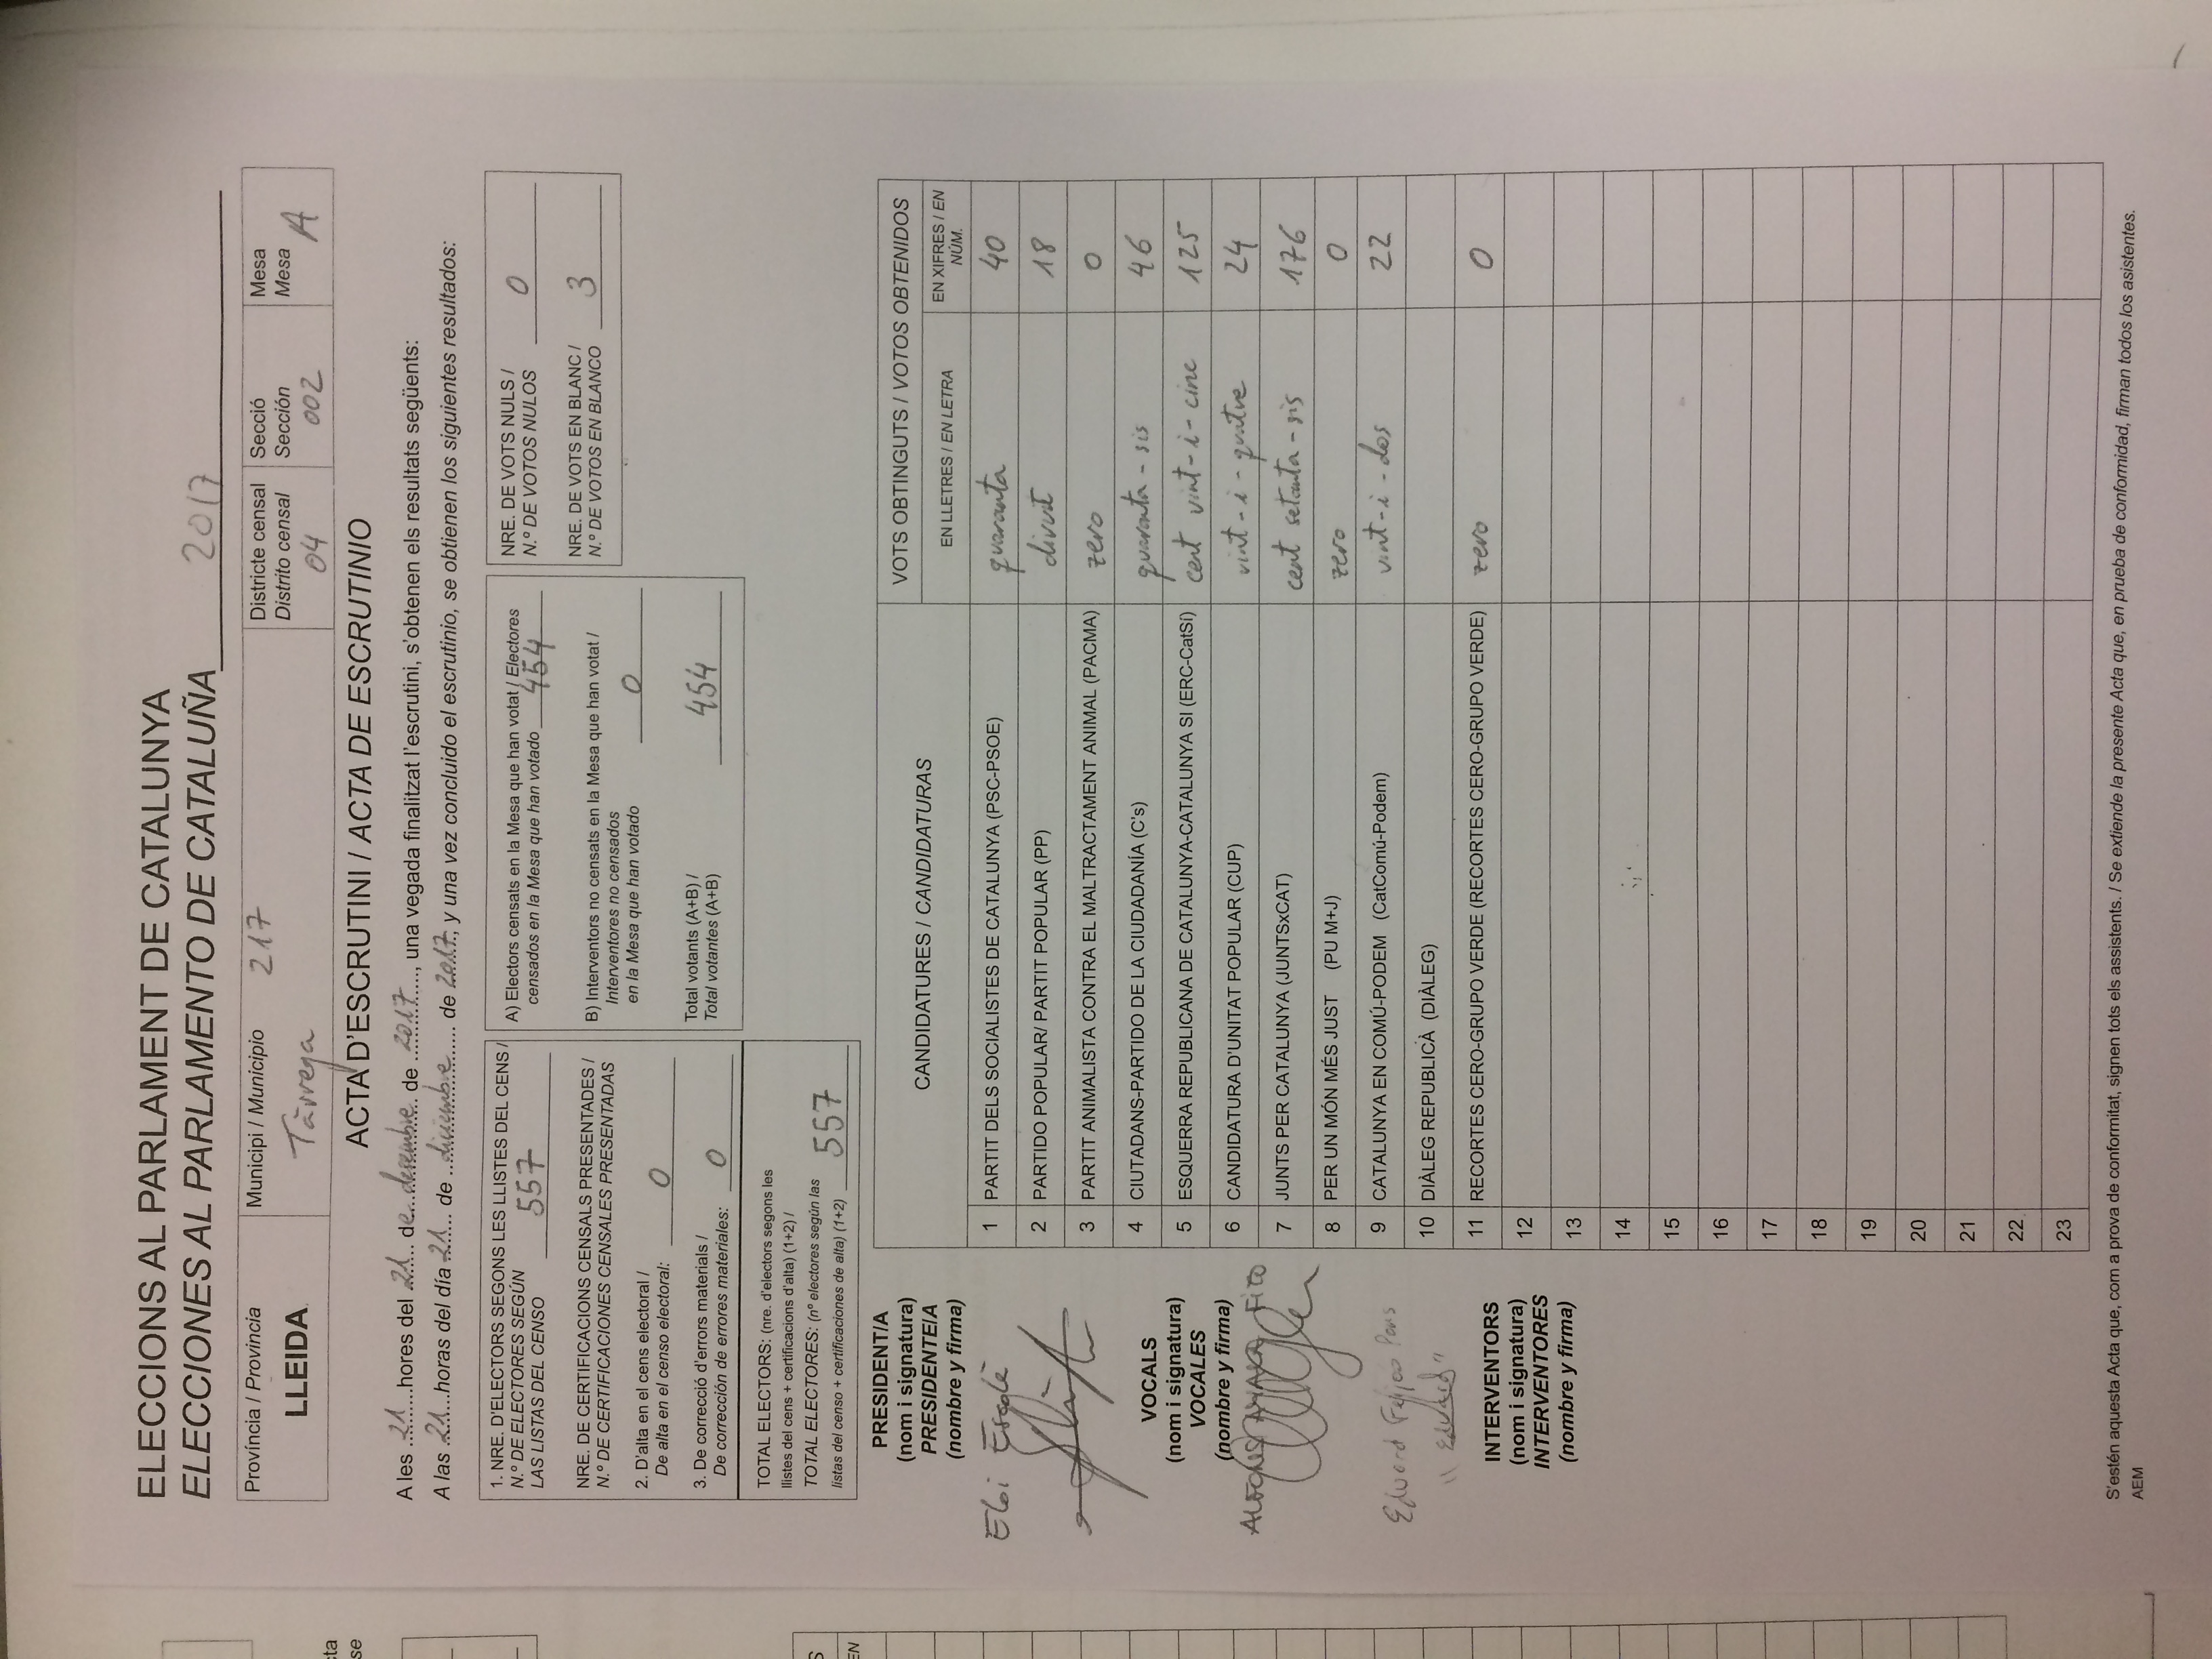 ELECCIONS AL PARLAMENT DE CATALUNYA
ELECCIONES AL PARLAMENTO DE CATALUÑA 2017
Província / Provincia
LLEIDA
Municipi / Municipio 217
Tàrrega
Districte censal
Distrito censal
04
Secció
Sección
002
Mesa
Mesa A
ACTA D'ESCRUTINI / ACTA DE ESCRUTINIO
A les 21 hores del 21 de desembre de 2017, una vegada finalitzat l'escrutini, s'obtenen els resultats següents:
A las 21 horas del día 21 de diciembre de 2017, y una vez concluido el escrutinio, se obtienen los siguientes resultados:
1. NRE. D'ELECTORS SEGONS LES LLISTES DEL CENS /
N.º DE ELECTORES SEGÚN
LAS LISTAS DEL CENSO 557
NRE. DE CERTIFICACIONS CENSALS PRESENTADES /
N.º DE CERTIFICACIONES CENSALES PRESENTADAS
2. D'alta en el cens electoral /
De alta en el censo electoral: 0
3. De correcció d'errors materials /
De corrección de errores materiales: 0
TOTAL ELECTORS: (nre. d'electors segons les
llistes del cens + certificacions d'alta) (1+2) /
TOTAL ELECTORES: (nº electores según las
listas del censo + certificaciones de alta) (1+2) 557
A) Electors censats en la Mesa que han votat / Electores
censados en la Mesa que han votado 454
B) Interventors no censats en la Mesa que han votat /
Interventores no censados
en la Mesa que han votado 0
Total votants (A+B) /
Total votantes (A+B) 454
NRE. DE VOTS NULS /
N.º DE VOTOS NULOS 0
NRE. DE VOTS EN BLANC /
N.º DE VOTOS EN BLANCO 3
PRESIDENT/A
(nom i signatura)
PRESIDENTE/A
(nombre y firma)
Eloi Escolè
VOCALS
(nom i signatura)
VOCALES
(nombre y firma)
ALFONS FITO
Eduard Feijoo Pons
"Eduard"
INTERVENTORS
(nom i signatura)
INTERVENTORES
(nombre y firma)
CANDIDATURES / CANDIDATURAS
VOTS OBTINGUTS / VOTOS OBTENIDOS
EN LLETRES / EN LETRA
EN XIFRES / EN
NÚM.
1 PARTIT DELS SOCIALISTES DE CATALUNYA (PSC-PSOE) quaranta 40
2 PARTIDO POPULAR/ PARTIT POPULAR (PP) divuit 18
3 PARTIT ANIMALISTA CONTRA EL MALTRACTAMENT ANIMAL (PACMA) zero 0
4 CIUTADANS-PARTIDO DE LA CIUDADANÍA (C's) quaranta-sis 46
5 ESQUERRA REPUBLICANA DE CATALUNYA-CATALUNYA SI (ERC-CatSí) cent vint-i-cinc 125
6 CANDIDATURA D'UNITAT POPULAR (CUP) vint-i-quatre 24
7 JUNTS PER CATALUNYA (JUNTSxCAT) cent setanta-sis 176
8 PER UN MÓN MÉS JUST (PU M+J) zero 0
9 CATALUNYA EN COMÚ-PODEM (CatComú-Podem) vint-i-dos 22
10 DIÀLEG REPUBLICÀ (DIÀLEG)
11 RECORTES CERO-GRUPO VERDE (RECORTES CERO-GRUPO VERDE) zero 0
12
13
14
15
16
17
18
19
20
21
22
23
S'estén aquesta Acta que, com a prova de conformitat, signen tots els assistents. / Se extiende la presente Acta que, en prueba de conformidad, firman todos los asistentes.
AEM
cta
se
S
EN